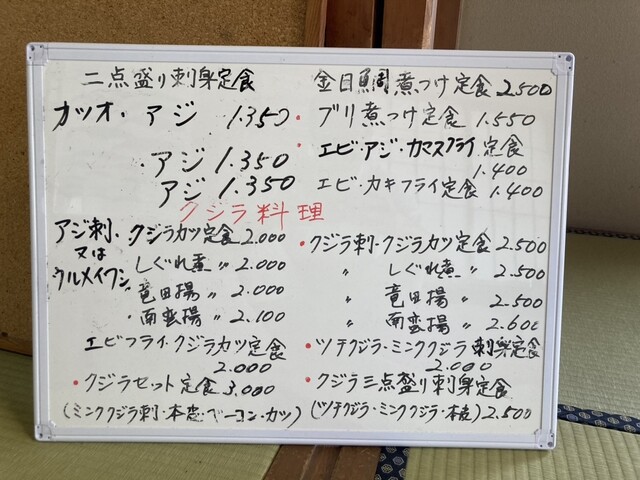 二点盛り刺身定食
カツオ・アジ 1.350
・アジ 1.350
アジ 1.350
金目鯛煮つけ定食 2.500
・ブリ煮つけ定食 1.550
エビ・アジ・カマスフライ定食
1.400
・エビ・カキフライ定食 1.400
クジラ料理
アジ刺・クジラカツ定食 2.000
又は
ウルメイワシ
しぐれ煮 〃 2.000
竜田揚 〃 2.000
・南蛮揚 〃 2.100
エビフライ・クジラカツ定食
2.000
・クジラセット定食 3.000
(ミンククジラ刺・本恋・ベーコン・カツ)
・クジラ刺・クジラカツ定食 2.500
〃 しぐれ煮 〃 2.500
〃 竜田揚 〃 2.500
〃 南蛮揚 〃 2.600
・ツチクジラ・ミンククジラ刺身定食
2.000
・クジラ三点盛り刺身定食
(ツチクジラ・ミンククジラ・本皮) 2.500